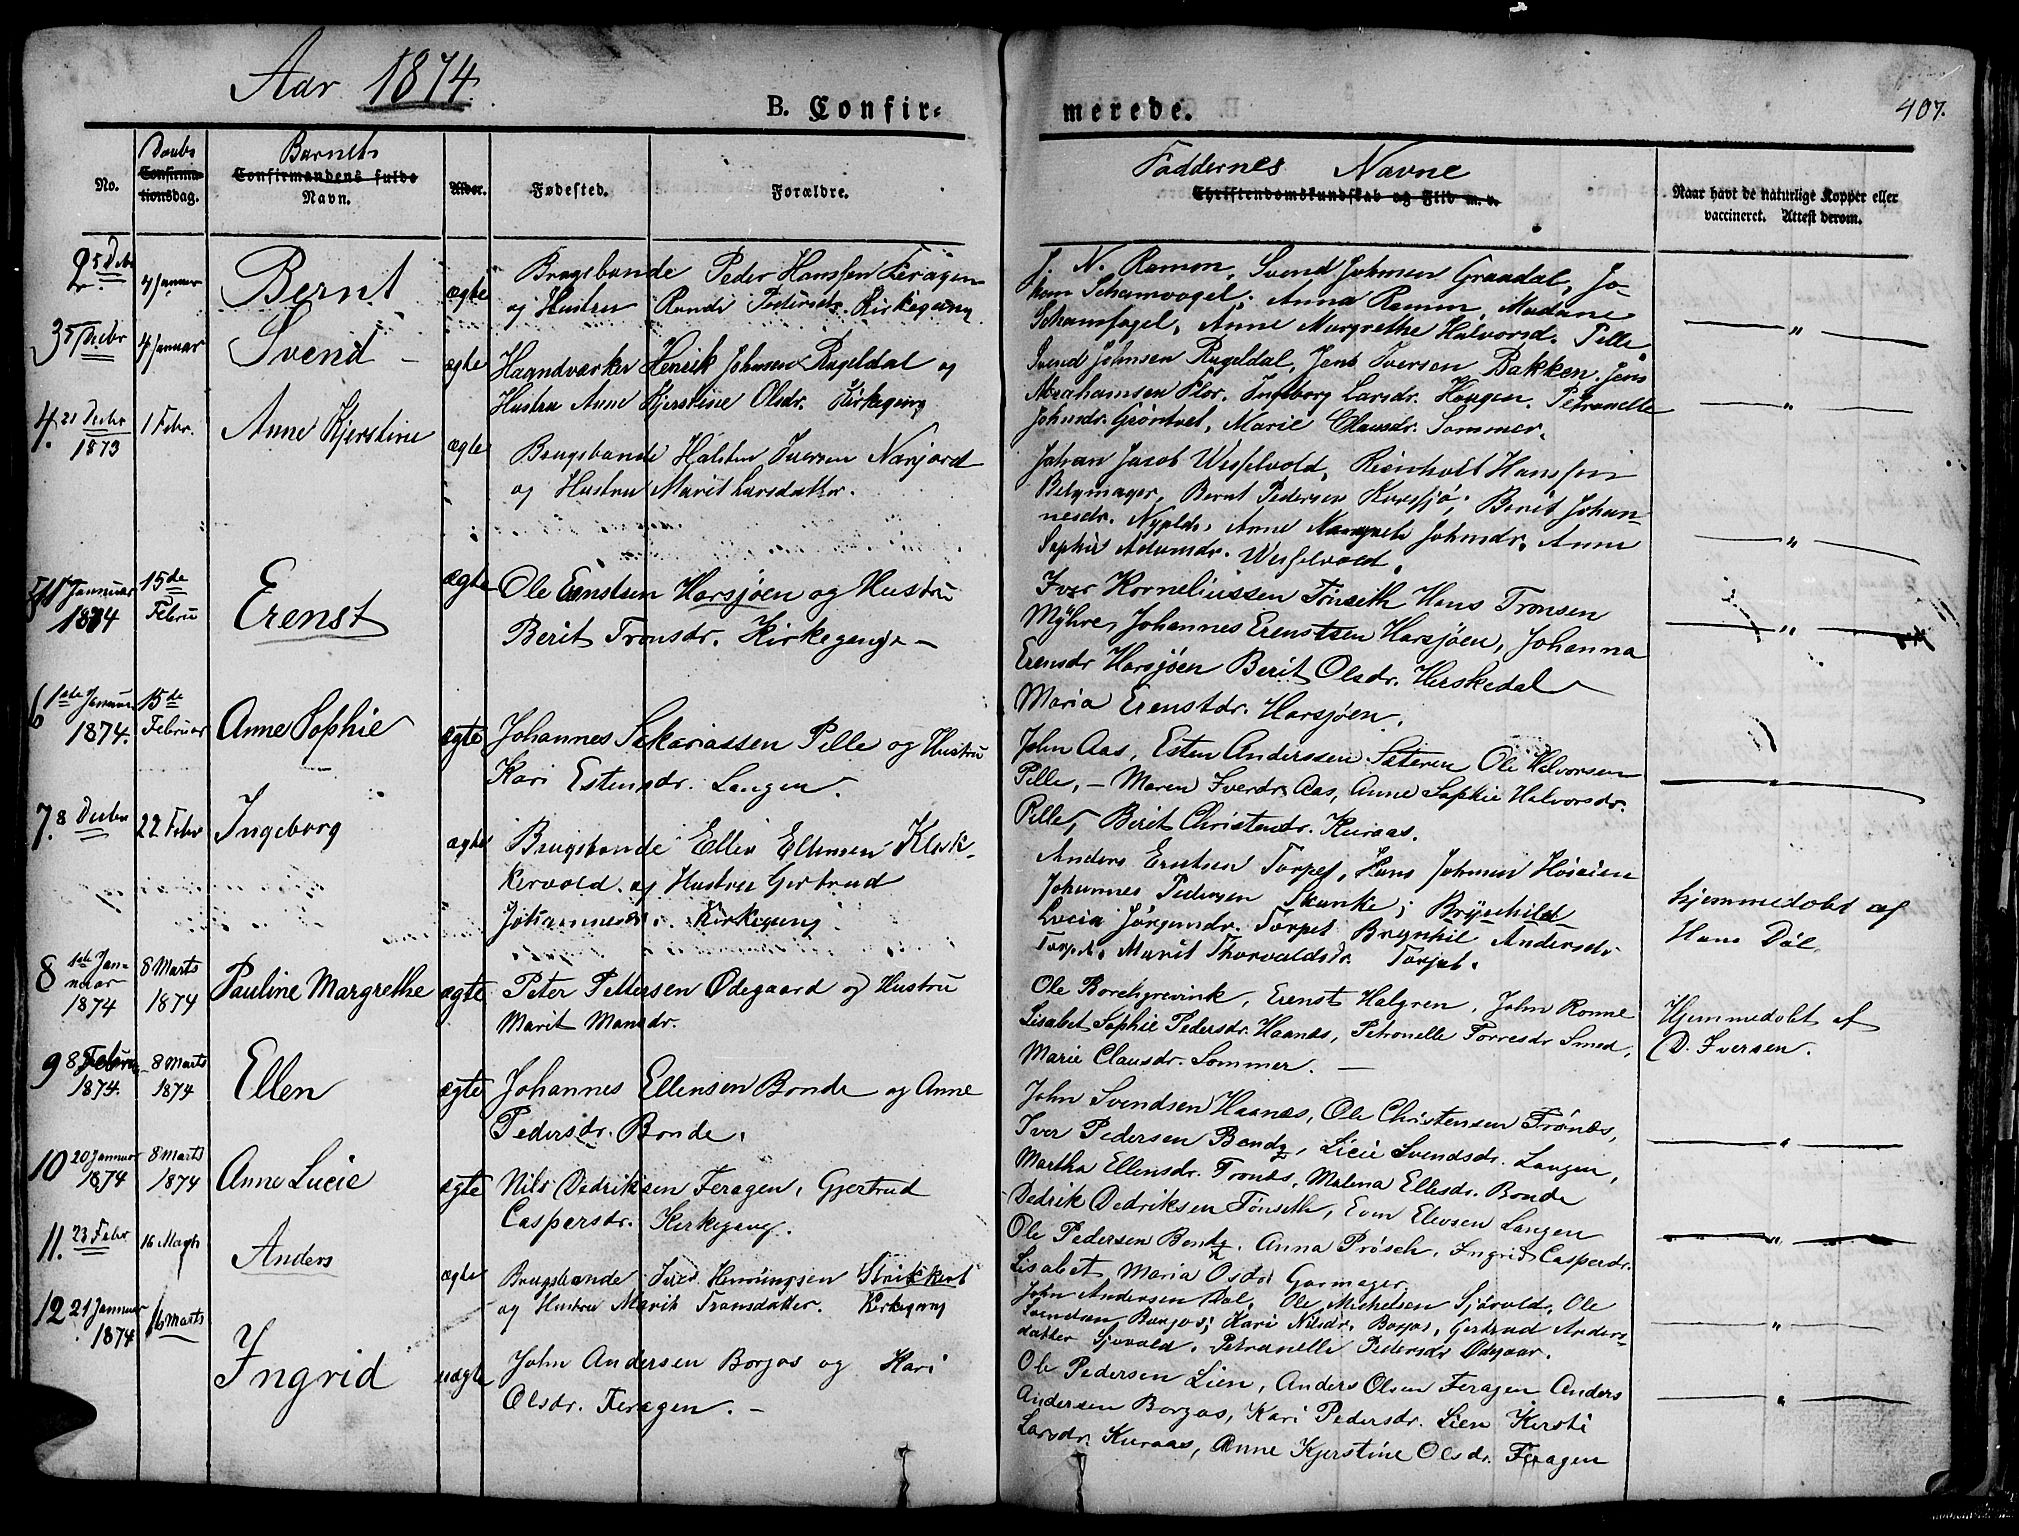 Aar 1874.
B. Confir-
merede.
407.
No.
Daabs
Confirma-
tionsdag.
Barnets
Confirmandens fulde
Navn.
Alder.
Fødested.
Forældre.
Faddernes Navne
Christendomskundskab og Flid m. v.
Naar havt de naturlige Kopper eller
vaccineret. Attest derom.
2. 5 Debr 4 Januar Bernt ægte Brugsbonde Peder Hanssen Feragen
og Hustru Rundi Pedersdtr. Kirkegang
J. N. Ramm, Svend Johnsen Graadal, Jo-
han Schamvogel; Anna Ramm, Madame
Schamfogel, Anne Margrethe Halvorsd. Pille
3 5 Debr 4 Januar Svend – ægte Haandværker Henrik Johnsen Rugeldal og
Hustru Anne Kjerstine Olsdr. Kirkegang
Svend Johnsen Rugeldal, Jens Iversen Bakken, Jens
Abrahamsen Flor. Ingeborg Larsdr. Haugen. Petronelle
Johnsdr. Grøntvet, Marie Clausdr. Sommer.
4. 21 Decbr 1873 1 Febr. Anne Kjerstine ægte Brugsbonde Halsten Iversen Narjord
og Hustru Marit Larsdatter.
Johan Jacob Wesselvold, Reinholt Hanssen
Belgmager, Bernt Pedersen Kursjø; Berit Johan-
nesdr. Nyplds, Anne Margrete Johnsdr. Anne
Sophie Adamdr. Wesselvold.
Januar 1874 15de Februa Erenst ægte Ole Ernstsen Harsjøen og Hustru
Berit Tronsdr. Kirkegang. –
Iver Korneliussen Tønseth Hans Tronsen
Myhre, Johannes Erenstsen Harsjøen, Johanna
Erensdr Harsjøen Berit Olsdr. Herskedal
Maria Erenstdr. Harsjøen.
6 1ste Januar 1874. 15de Februar Anne Sophie ægte Johannes Sakariassen Pille og Hustru
Kari Estensdr. Langen.
John Aas, Esten Anderssen Sæteren Ole Halvorsen
Pille, – Maren Iverdr. Aas, Anne Sophie Halvorsdr.
Pille, Berit Christendr. Kuraas.
7. 8 Decbr 22 Febr Ingeborg ægte Brugsbonde Ellev Ellensen Klok-
kervold. og Hustru Gertrud
Johannesdr. Kirkegang.
Anders Erntsen Torpet, Hans Johnsen Høseien
Johannes Pedersen Skanke; Brynhild
Lucia Jørgensdr. Torpet Brynhil Andersdr
Torpet. Marit Thorvaldsdr. Torpet.
hjemmedøbt af
Hans Døl.
8 1ste Jan-
nuar 1874 8 Marts 1874 Pauline Margrethe ægte Peter Pettersen Ødegaard og Hustru
Marit Monsdr.
Ole Borchgrevink, Erenst Halgren, John Ronne
Lisabet Sophie Pedersdr. Haanæs, Petronelle Torresdr Smed,
Marie Clausdr. Sommer. —
Hjemmedøbt af
D. Iversen.
9 8 Februar 1874. 8 Marts 1874 Ellen ægte Johannes Ellensen Bonde og Anne
Pedersdr. Bonde.
John Svendsen Haanæs, Ole Christensen Trønæs,
Iver Pedersen Bonde, Licie Svendsdr. Langen,
Martha Ellensdr. Tronæs, Malena Ellesdr. Bonde
10 20 Januar 1874 8 Marts 1874 Anne Lucie ægte Nils Dedriksen Feragen, Gjertrud
Caspersdr. Kirkegang.
Dedrik Dedriksen Tønseth, Even Elevsen Langen
Ole Pedersen Bonde. Anna Prøsch, Ingrid Casperdr.
Lisabet Maria Osdr. Garmager.
11. 23 Febr 16 Marts Anders ægte Brugsbonde Iver Hemingsen Strikkert
og Hustru Marit Transdatter. Kirkegang
John Andersen Dal, Ole Michelsen Sjøvold, Ole
Svendsen Borgos; Kari Nilsdr. Borgos, Gertrud Anders-
datter Sjøvold, Petronelle Pedersdr Ødegaar.
12 21 Januar 1874 16 Marts Ingrid uægte John Andersen Borgos og Kari
Olsdr. Feragen. –
Ole Pedersen Lien, Anders Olsen Feragen Anders
Andersen Borgos, Kari Pedersdr. Lien Kersti
Larsdr. Kuraas, Anne Kjerstine Olsdr. Feragen